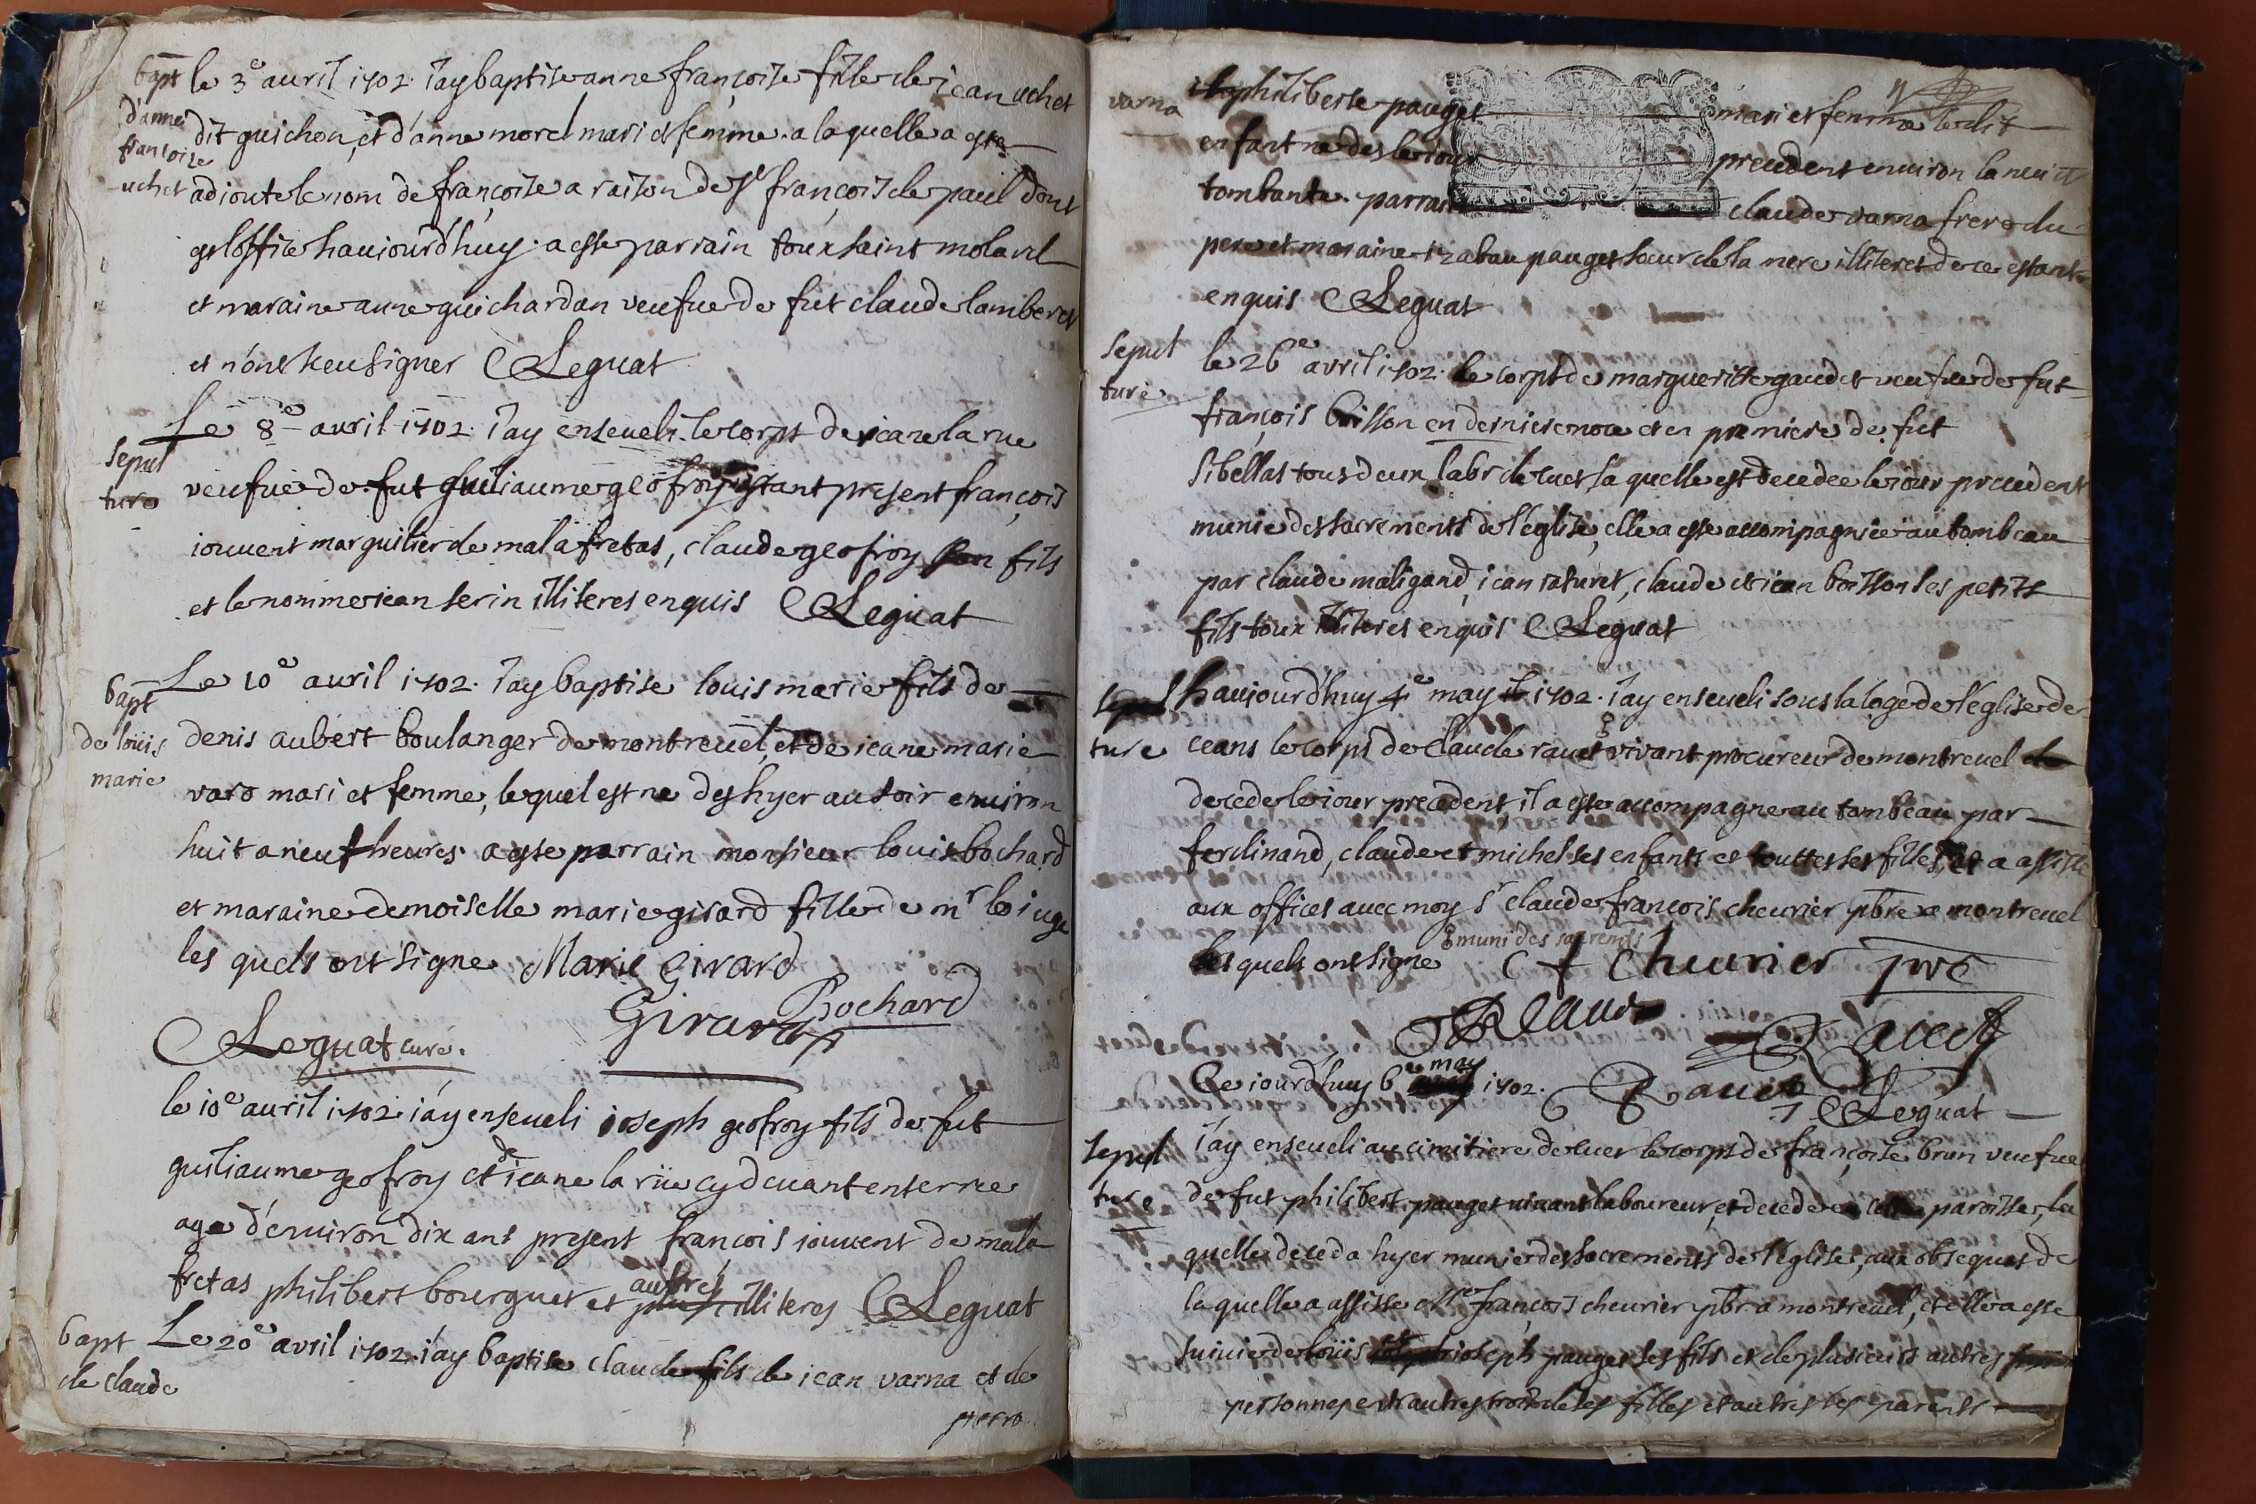 bapt
d'anne
francoize
uchet
le 3e auril 1702. Jay baptise anne françoise fille de jean uchet
dit guichon, et d'anne morel mari et femme. a laquelle a este
adioute le nom de françoise a raison de st françois de paul dont
est loffice haujourd'huy. a este parrain toux saint molard
et maraine anne guichardan veufue de fut claude lamberet
et n'ont sceu signer Leguat
Sepul
ture
Le 8e auril 1702. Jay enseueli le corps de jeane la rue
veufue de fut guiliaume geofroy estant present françois
iouuent marguilier de malafretas, claude geofroy son fils
et le nomme jean serin illiteres enquis Leguat
bapt
de loüis
marie
Le 10e auril 1702. Jay baptise louis marie fils de
denis aubert boulanger de montreuel, et de jeane marie
varo mari et femme, lequel est ne des hyer au soir enuiron
huit a neuf heures. a este parrain monsieur louis bochard
et maraine demoiselle marie girard fille de mr le iuge
les quels ont signe Marie Girard
Bochard
Girard
Leguat curé.
le 10e auril 1702. j'ay enseueli joseph geofroy fils de fut
guiliaume geofroy et de jeane la rüe cy deuant enterree
age d'enuiron dix ans present françois iouuent de mala
fretas philibert bourguet et autres illiteres Leguat
bapt
de claude
Le 20e avril 1702. j'ay baptise claude fils de jean varna et de
varna
philiberte pauget mari et femme ledit
enfant ne des le iour precedent enuiron la nuict
tombante. parrain claude varna frere du
pere et maraine izabau pauget soeur de la mere illiteres de ce estants
enquis Leguat
Sepul
ture
le 26e avril 1702. le corps de margueritte gaudet veufue de fut
françois buisson en derniere noce et en premiere de fut
sibellas tous deux labr de cuet laquelle est decedee le iour precedent
munie des sacrements de l'eglise, elle a este accompagnée au tombeau
par claude maligand, jean saturet, claude et jean boisson ses petits
fils toux illiteres enquis Leguat
Sepul
ture
haujourd'huy 4e may 1702. Jay enseueli sous la loge de l'eglise de
ceans le corps de claude rauet vivant procureur de montreuel
decede le iour precedent, il a este accompagne au tombeau par
ferdinand, claude et michel ses enfants et touttes ses filles, et a assiste
aux offices auec moy sr claude françois cheurier pbre a montreuel
muni des sacremts
lesquels ont signe C f Cheurier pre
Rauet
Rauet
Ce iourd'huy 6e may 1702. Rauet
Leguat
Sepul
ture
J'ay enseueli au cimitiere de cuet le corps de françoise brun veufue
de fut philibert pauget uiuant laboureur, et decede en paroisse, la
quelle deceda hyer munie des sacrements de l'eglise, aux obseques de
la quelle a assiste Mre françois cheurier pbr a montreuel, et elle a este
suiuie de loüis joseph pauget ses fils et de plusieurs autres
personnes entr'autres trois de ses filles et autres ses parents